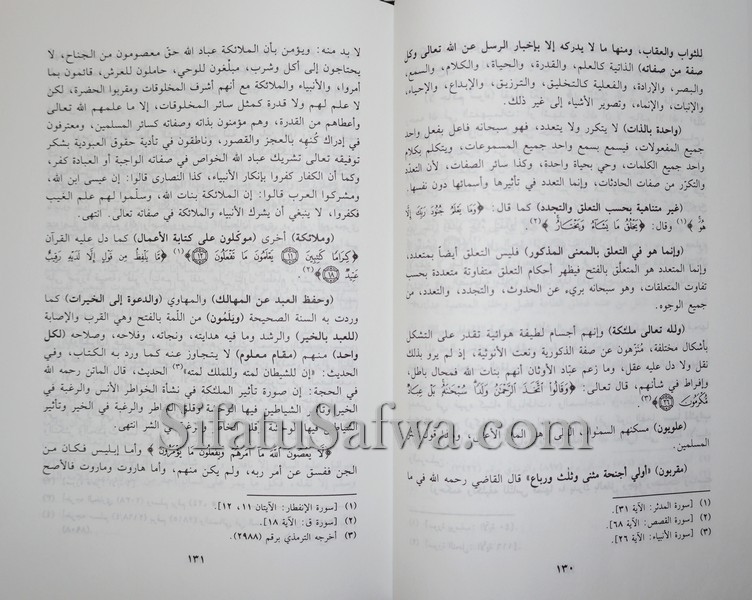 للثواب والعقاب، ومنها ما لا يدركه إلا بإخبار الرسل عن الله تعالى وكل
صفة من صفاته) الذاتية كالعلم، والقدرة، والحياة، والكلام، والسمع،
والبصر، والإرادة، والفعلية كالتخليق، والترزيق، والإبداع، والإحياء،
والإنبات، والإنماء، وتصوير الأشياء إلى غير ذلك.
(واحدة بالذات) لا يتكرر ولا يتعدد، فهو سبحانه فاعل بفعل واحد
جميع المفعولات، فيسمع بسمع واحد جميع المسموعات، ويتكلم بكلام
واحد جميع الكلمات، وحي بحياة واحدة، وكذا سائر الصفات، لأن التعدد
والتكرر من صفات الحادثات، وإنما التعدد في تأثيرها وأسمائها دون نفسها.
(غير متناهية بحسب التعلق والتجدد) كما قال: ﴿وَمَا يَعْلَمُ جُنُودَ رَبِّكَ إِلَّا
هُوَ﴾(١) وقال: ﴿يَخْلُقُ مَا يَشَاءُ وَيَخْتَارُ﴾(٢).
(وإنما هو في التعلق بالمعنى المذكور) فليس التعلق أيضاً بمتعدد،
وإنما المتعدد هو المتعلَّق بالفتح فيظهر أحكام التعلق متفاوتة متعددة بحسب
تفاوت المتعلقات، وهو سبحانه بريء عن الحدوث، والتجدد، والتعدد، من
جميع الوجوه.
(ولله تعالى ملئكة) وإنهم أجسام لطيفة هوائية تقدر على التشكل
بأشكال مختلفة، مُنزّهون عن صفة الذكورية ونعت الأنوثية، إذ لم يرو بذلك
نقل ولا دل عليه عقل، وما زعم عبّاد الأوثان أنهم بنات الله فمحال باطل،
وإفراط في شأنهم، قال تعالى: ﴿وَقَالُوا اتَّخَذَ الرَّحْمَنُ وَلَدًا سُبْحَانَهُ بَلْ عِبَادٌ
مُكْرَمُونَ ﴿٢٦﴾﴾(٣).
(علويون) مسكنهم السموات
المسلمين.
(مقربون) «أولي أجنحة مثنى وثلث ورباع» قال القاضي رحمه الله في ما
(١) [سورة المدثر: الآية ٣١].
(٢) [سورة القصص: الآية ٦٨].
(٣) [سورة الأنبياء: الآية ٢٦].
١٣٠
لا بد منه: ويؤمن بأن الملائكة عباد الله حقّ معصومون من الجناح، لا
يحتاجون إلى أكل وشرب، مبلّغون للوحي، حاملون للعرش، قائمون بما
أمروا، والأنبياء والملائكة مع أنهم أشرف المخلوقات ومقربوا الحضرة، لكن
لا علم لهم ولا قدرة كمثل سائر المخلوقات، إلا ما علمهم الله تعالى
وأعطاهم من القدرة، وهم مؤمنون بذاته وصفاته كسائر المسلمين، ومعترفون
في إدراك كُنهِه بالعجز والقصور، وناطقون في تأدية حقوق العبودية بشكر
توفيقه تعالى تشريك عباد الله الخواص في صفاته الواجبة أو العبادة كفر،
وكما أن الكفار كفروا بإنكار الأنبياء، كذا النصارى قالوا: إن عيسى ابن الله،
ومشركوا العرب قالوا: إن الملائكة بنات الله، وسلّموا لهم علم الغيب
فكفروا، لا ينبغي أن يشرك الأنبياء والملائكة في صفاته تعالى. انتهى.
(وملائكة) أخرى (موكلون على كتابة الأعمال) كما دل عليه القرآن
﴿كِرَامًا كَاتِبِينَ ﴿١١﴾ يَعْلَمُونَ مَا تَفْعَلُونَ ﴿١٢﴾﴾(١) ﴿مَّا يَلْفِظُ مِن قَوْلٍ إِلَّا لَدَيْهِ رَقِيبٌ
عَتِيدٌ ﴿١٨﴾﴾(٢).
(وحفظ العبد عن المهالك) والمهاوي (والدعوة إلى الخيرات) كما
وردت به السنة الصحيحة (ويَلمون) من اللّمة بالفتح وهي القرب والإصابة
(للعبد بالخير) والرشد وما فيه هدايته، ونجاته، وفلاحه، وصلاحه (لكل
واحد) منهم (مقام معلوم) لا يتجاوز عنه كما ورد به الكتاب، وفي
الحديث: «إن للشيطان لمته وللملك لمته»(٣) الحديث، قال الماتن رحمه الله
في الحجة: إن صورة تأثير الملئكة في نشأة الخواطر الأنس والرغبة في
الخير، وتأثير الشياطين فيها الوحشة وقلق الخاطر والرغبة في الشر انتهى.
﴿لَا يَعْصُونَ اللَّهَ مَا أَمَرَهُمْ وَيَفْعَلُونَ مَا يُؤْمَرُونَ﴾ وأما إبليس فكان من
الجن ففسق عن أمر ربه، ولم يكن منهم، وأما هاروت وماروت فالأصح
(١) [سورة الإنفطار: الآيتان ١١، ١٢].
(٢) [سورة ق: الآية ١٨].
(٣) أخرجه الترمذي برقم (٢٩٨٨).
١٣١
SifatuSafwa.com